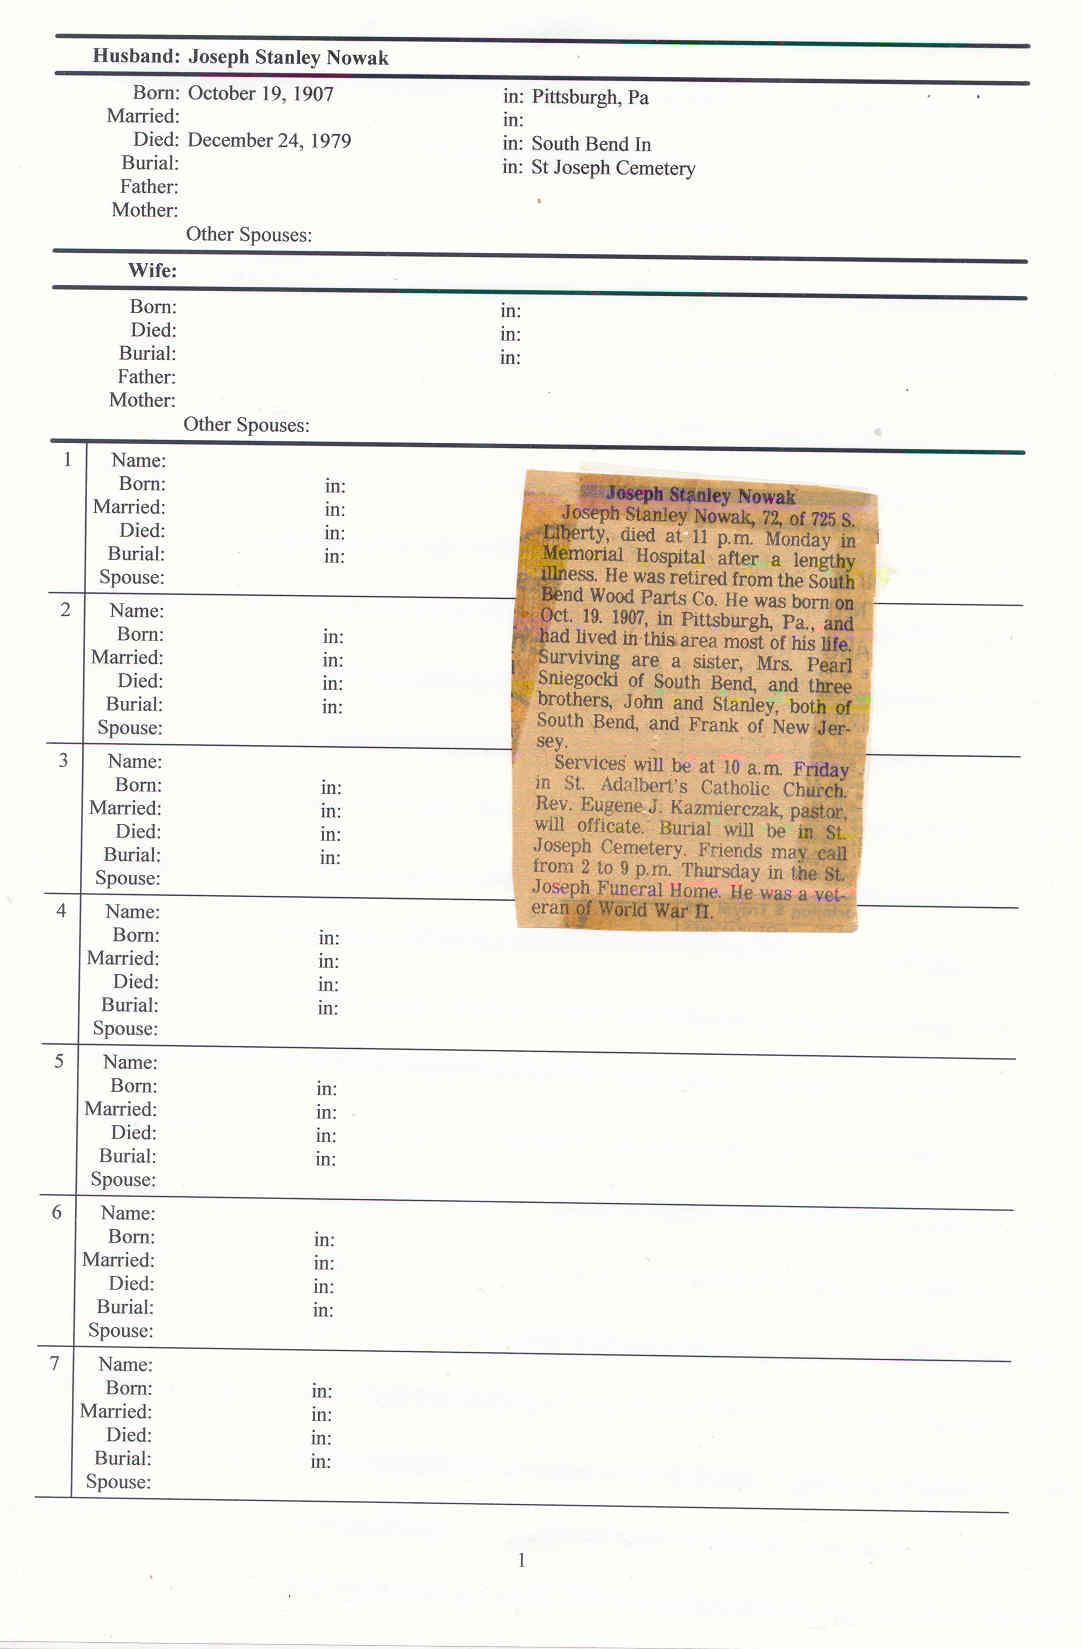 Husband: Joseph Stanley Nowak
Born: October 19, 1907 in: Pittsburgh, Pa
Married: in:
Died: December 24, 1979 in: South Bend In
Burial: in: St Joseph Cemetery
Father:
Mother:
Other Spouses:
Wife:
Born: in:
Died: in:
Burial: in:
Father:
Mother:
Other Spouses:
1 Name:
Born: in:
Married: in:
Died: in:
Burial: in:
Spouse:
2 Name:
Born: in:
Married: in:
Died: in:
Burial: in:
Spouse:
3 Name:
Born: in:
Married: in:
Died: in:
Burial: in:
Spouse:
4 Name:
Born: in:
Married: in:
Died: in:
Burial: in:
Spouse:
5 Name:
Born: in:
Married: in:
Died: in:
Burial: in:
Spouse:
6 Name:
Born: in:
Married: in:
Died: in:
Burial: in:
Spouse:
7 Name:
Born: in:
Married: in:
Died: in:
Burial: in:
Spouse:
Joseph Stanley Nowak
Joseph Stanley Nowak, 72, of 725 S.
Liberty, died at 11 p.m. Monday in
Memorial Hospital after a lengthy
illness. He was retired from the South
Bend Wood Parts Co. He was born on
Oct. 19. 1907, in Pittsburgh, Pa., and
had lived in this area most of his life.
Surviving are a sister, Mrs. Pearl
Sniegocki of South Bend, and three
brothers, John and Stanley, both of
South Bend, and Frank of New Jer-
sey.
Services will be at 10 a.m. Friday
in St. Adalbert's Catholic Church.
Rev. Eugene J. Kazmierczak, pastor,
will officate. Burial will be in St.
Joseph Cemetery. Friends may call
from 2 to 9 p.m. Thursday in the St.
Joseph Funeral Home. He was a vet-
eran of World War II.
1